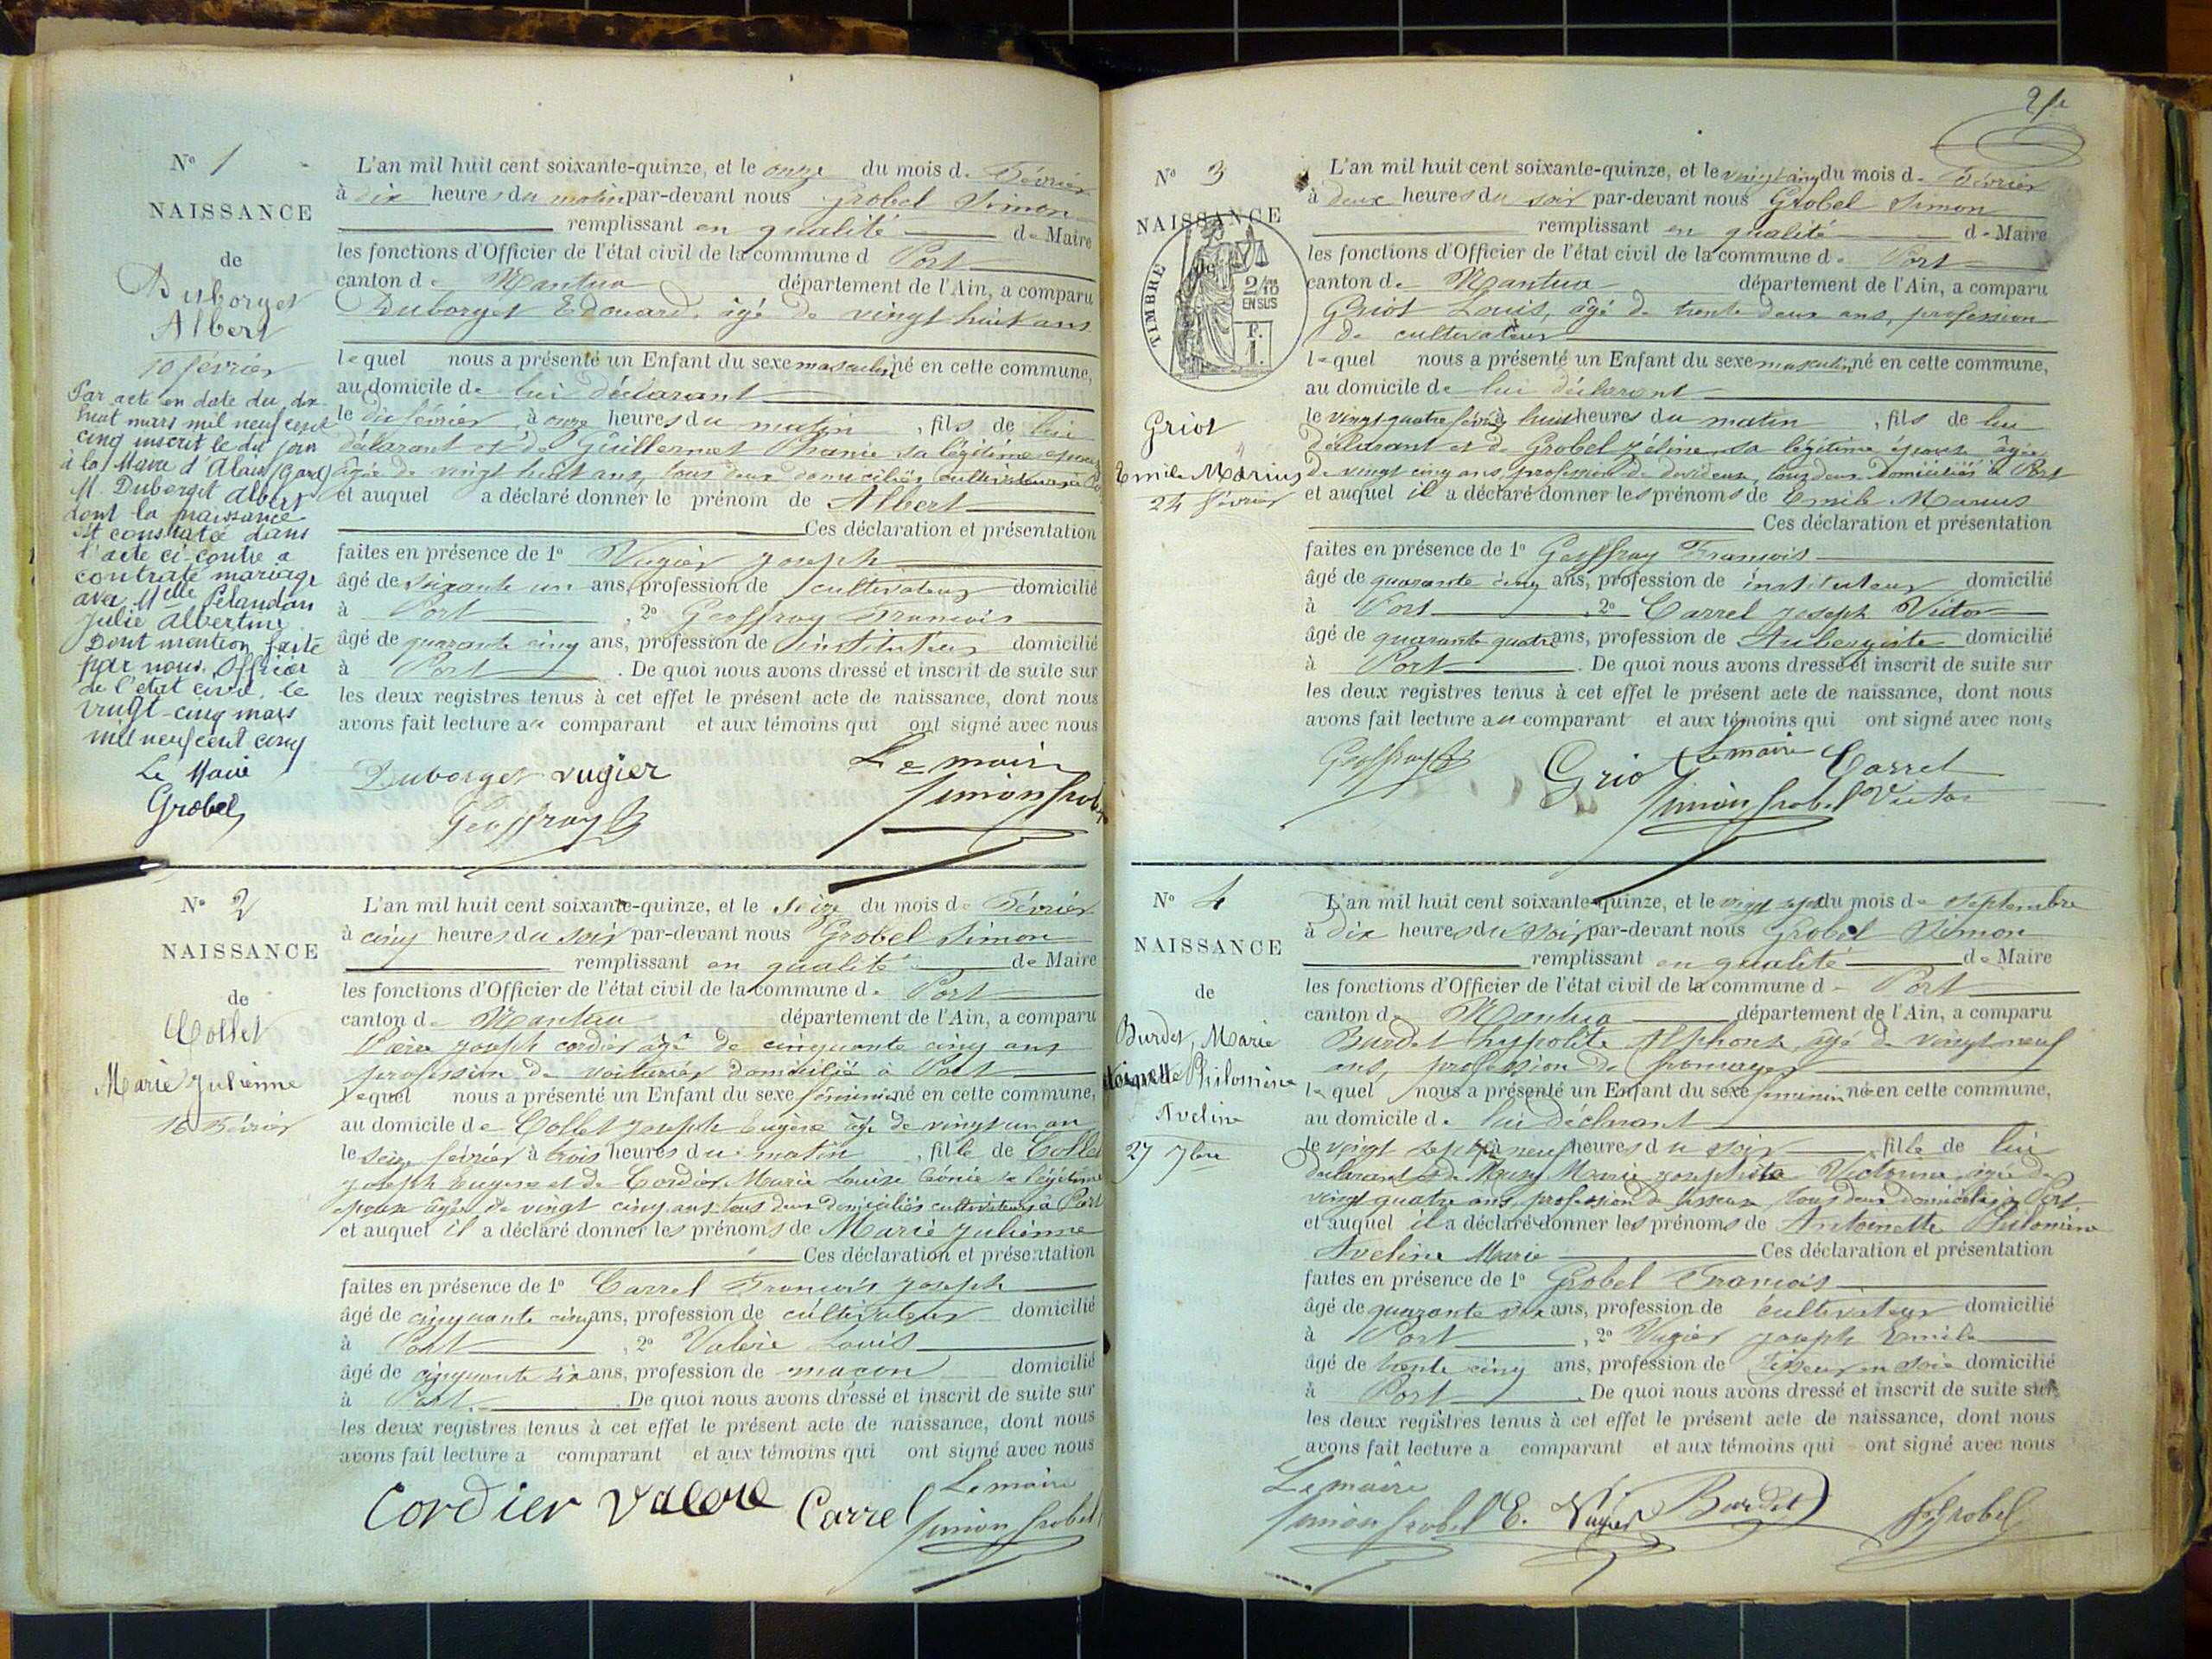 N° 1
NAISSANCE
de
Duborget
Albert
10 février
Par acte en date du dix
huit mars mil neuf cent
cinq inscrit le dit jour
à la Mairie d'Alais (Gard)
M. Duborget Albert
dont la naissance
est constatée dans
l'acte ci-contre a
contracté mariage
avec Melle Pelaudan
Julie Albertine
Dont mention faite
par nous, Officier
de l'état civil, le
vingt-cinq mars
mil neuf cent cinq
Le Maire
Grobel
L'an mil huit cent soixante-quinze, et le onze du mois de Février
à dix heures du matin par-devant nous Grobel Simon
remplissant en qualité de Maire
les fonctions d'Officier de l'état civil de la commune d Port
canton de Nantua département de l'Ain, a comparu
Duborget Edouard, âgé de vingt huit ans
lequel nous a présenté un Enfant du sexe masculin né en cette commune,
au domicile de lui déclarant
le dix février à onze heures du matin, fils de lui
déclarant et de Guillermet Phanie sa légitime épouse
âgée de vingt huit ans, tous deux domiciliés cultivateurs à
et auquel a déclaré donner le prénom de Albert
Ces déclaration et présentation
faites en présence de 1° Vugier Joseph
âgé de soixante un ans, profession de cultivateur domicilié
à Port, 2° Geoffray Francois
âgé de quarante cinq ans, profession de instituteur domicilié
à Port. De quoi nous avons dressé et inscrit de suite sur
les deux registres tenus à cet effet le présent acte de naissance, dont nous
avons fait lecture au comparant et aux témoins qui ont signé avec nous
Duborget Vugier Le maire
Geoffray Simon Grobel
N° 2
NAISSANCE
de
Collet
Marie Julienne
16 Février
L'an mil huit cent soixante-quinze, et le seize du mois de Février
à cinq heures du soir par-devant nous Grobel Simon
remplissant en qualité de Maire
les fonctions d'Officier de l'état civil de la commune de Port
canton de Nantua département de l'Ain, a comparu
Joseph cordier âgé de cinquante cinq ans
profession de voiturier domicilié à Port
lequel nous a présenté un Enfant du sexe féminin né en cette commune,
au domicile de Collet Joseph Eugène âgé de vingt un an
le seize février à trois heures du matin, fille de Collet
Joseph Eugène et de Cordier Marie Louise Léonie sa légitime
épouse âgée de vingt cinq ans tous deux domiciliés cultivateurs à Port
et auquel il a déclaré donner les prénoms de Marie Julienne
Ces déclaration et présentation
faites en présence de 1° Carrel Francois Joseph
âgé de cinquante cinq ans, profession de cultivateur domicilié
à Port, 2° Valère Louis
âgé de cinquante six ans, profession de maçon domicilié
à Port. De quoi nous avons dressé et inscrit de suite sur
les deux registres tenus à cet effet le présent acte de naissance, dont nous
avons fait lecture a comparant et aux témoins qui ont signé avec nous
Cordier Valere Carrel Le maire
Simon Grobel
N° 3
NAISSANCE
de
TIMBRE
2/10
EN SUS
F.
1.
Griot
Emile Marius
24 février
L'an mil huit cent soixante-quinze, et le vingt cinq du mois de Février
à deux heures du soir par-devant nous Grobel Simon
remplissant en qualité de Maire
les fonctions d'Officier de l'état civil de la commune de Port
canton de Nantua département de l'Ain, a comparu
Griot Louis, âgé de trente deux ans, profession
de cultivateur
lequel nous a présenté un Enfant du sexe masculin né en cette commune,
au domicile de lui déclarant
le vingt quatre février à huit heures du matin, fils de lui
déclarant et de Grobel Zéline sa légitime épouse âgée
de vingt cinq ans, profession de devideuse, tous deux domiciliés à Port
et auquel il a déclaré donner les prénoms de Emile Marius
Ces déclaration et présentation
faites en présence de 1° Geoffray Francois
âgé de quarante cinq ans, profession de instituteur domicilié
à Port, 2° Carrel Joseph Victor
âgé de quarante quatre ans, profession de Aubergiste domicilié
à Port. De quoi nous avons dressé et inscrit de suite sur
les deux registres tenus à cet effet le présent acte de naissance, dont nous
avons fait lecture au comparant et aux témoins qui ont signé avec nous
Geoffray Griot Le maire Carrel
Simon Grobel Victor
N° 4
NAISSANCE
de
Burdet, Marie
Antoinette Philomène
Aveline
27 7bre
L'an mil huit cent soixante-quinze, et le vingt sept du mois de Septembre
à dix heures du soir par-devant nous Grobel Simon
remplissant en qualité de Maire
les fonctions d'Officier de l'état civil de la commune d Port
canton de Nantua département de l'Ain, a comparu
Burdet hypolite Alphonse âgé de vingt neuf
ans, profession de fromager
lequel nous a présenté un Enfant du sexe féminin né en cette commune,
au domicile de lui déclarant
le vingt sept à neuf heures du soir, fille de lui
déclarant et de Marie Josephite Victorine âgée de
vingt quatre ans, profession de tisseuse, tous deux domiciliés à Port
et auquel il a déclaré donner les prénoms de Antoinette Philomène
Aveline Marie Ces déclaration et présentation
faites en présence de 1° Grobel Francois
âgé de quarante six ans, profession de cultivateur domicilié
à Port, 2° Vugier Joseph Emile
âgé de trente cinq ans, profession de Tisseur en soie domicilié
à Port. De quoi nous avons dressé et inscrit de suite sur
les deux registres tenus à cet effet le présent acte de naissance, dont nous
avons fait lecture a comparant et aux témoins qui ont signé avec nous
Le maire
Simon Grobel E. Vugier Burdet Grobel